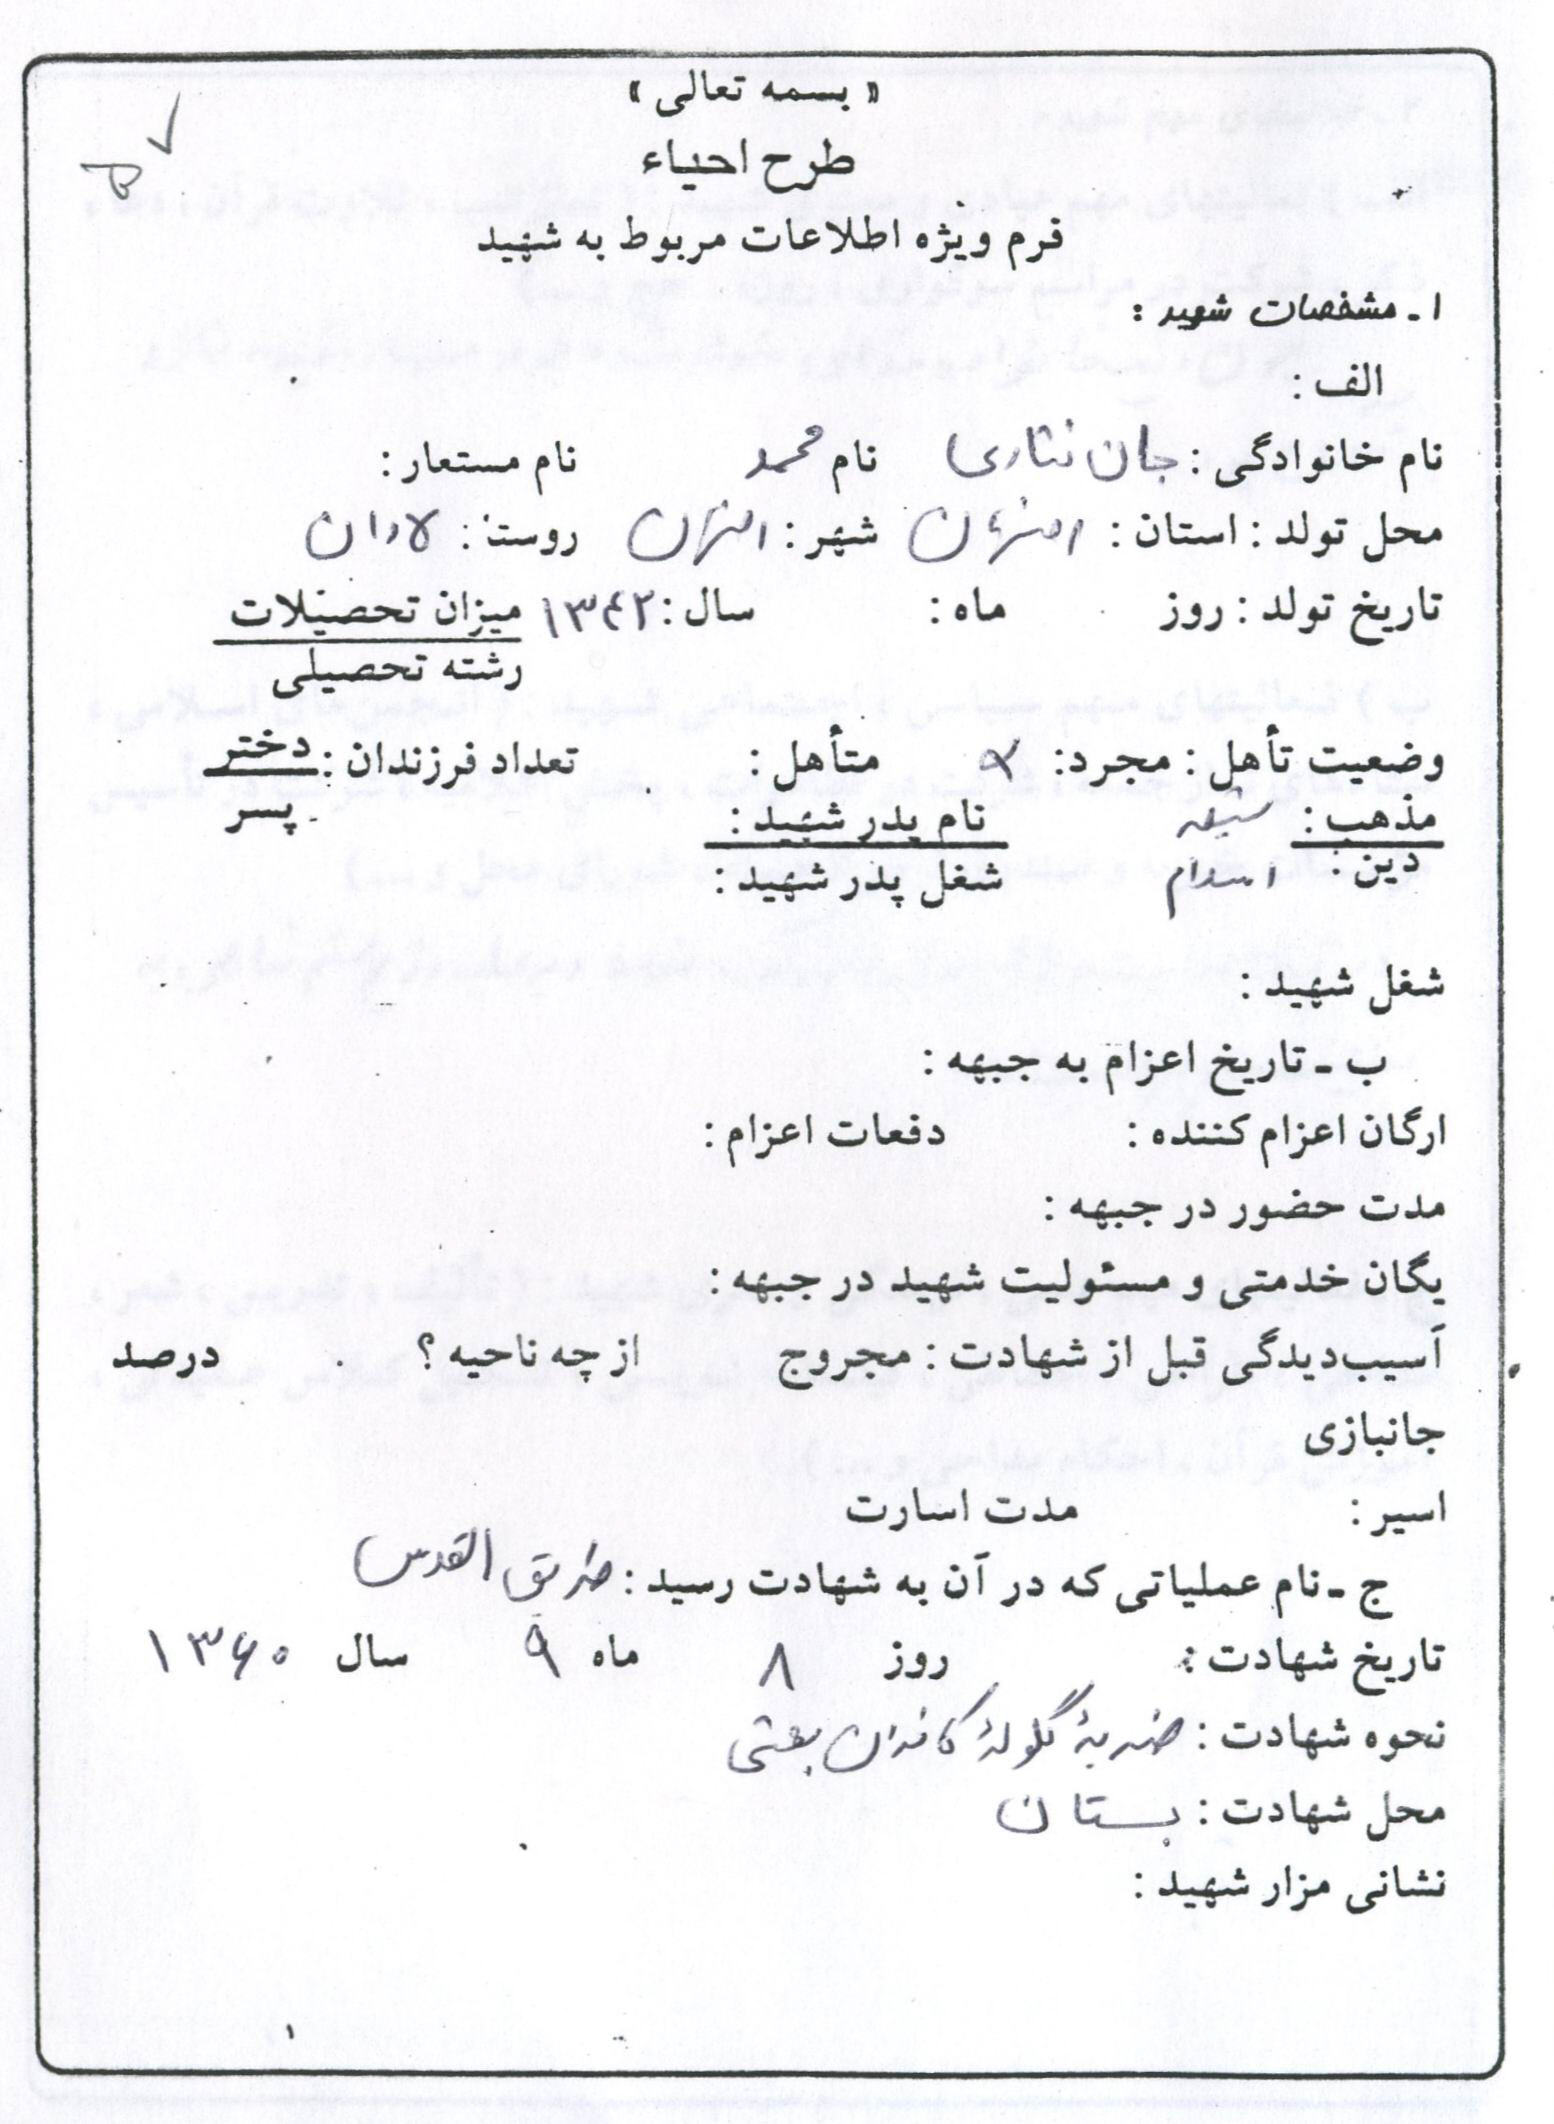 « بسمه تعالی »
طرح احیاء
فرم ویژه اطلاعات مربوط به شهید
۱ـ مشخصات شهید :
الف :
نام خانوادگی : جان نثاری نام محمد نام مستعار :
محل تولد : استان : اصفهان شهر : اصفهان روستا : لادان
تاریخ تولد : روز ماه : سال : ۱۳۴۲ میزان تحصیلات
رشته تحصیلی
وضعیت تأهل : مجرد : متأهل : تعداد فرزندان : دختر
مذهب : شیعه نام پدر شهید : پسر
دین : اسلام شغل پدر شهید :
شغل شهید :
ب ـ تاریخ اعزام به جبهه :
ارگان اعزام کننده : دفعات اعزام :
مدت حضور در جبهه :
یگان خدمتی و مسئولیت شهید در جبهه :
آسیب‌دیدگی قبل از شهادت : مجروح از چه ناحیه ؟ درصد
جانبازی
اسیر : مدت اسارت
ج ـ نام عملیاتی که در آن به شهادت رسید : طریق القدس
تاریخ شهادت : روز ۸ ماه ۹ سال ۱۳۶۰
نحوه شهادت : ضربهٔ گلولهٔ کافران بعثی
محل شهادت : بستان
نشانی مزار شهید :
۱